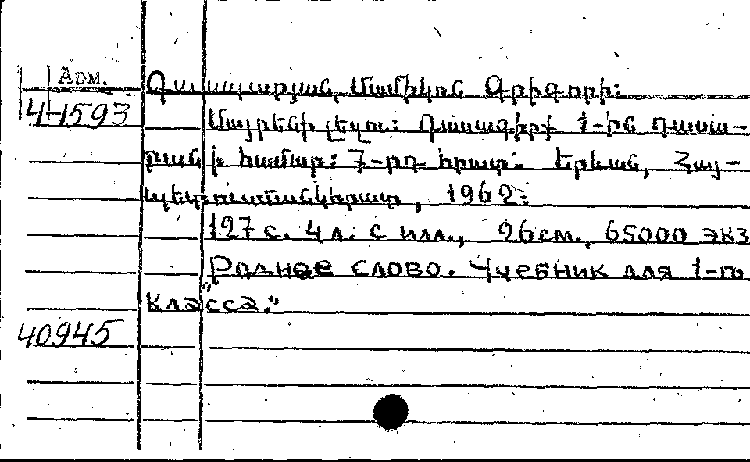 Арм.
Գասպարյան, Մամիկոն Գրիգորի:
4-1593
Մայրենի լեզու: Դասագիրք 1-ին դասա-
րանի համար: 7-րդ հրատ: Երևան, Հայ-
պետուսմանկհրատ, 1962:
127 с. 4 л. с илл., 26см., 65000 экз
"Родное слово. Учебник для 1-го
класса."
40945